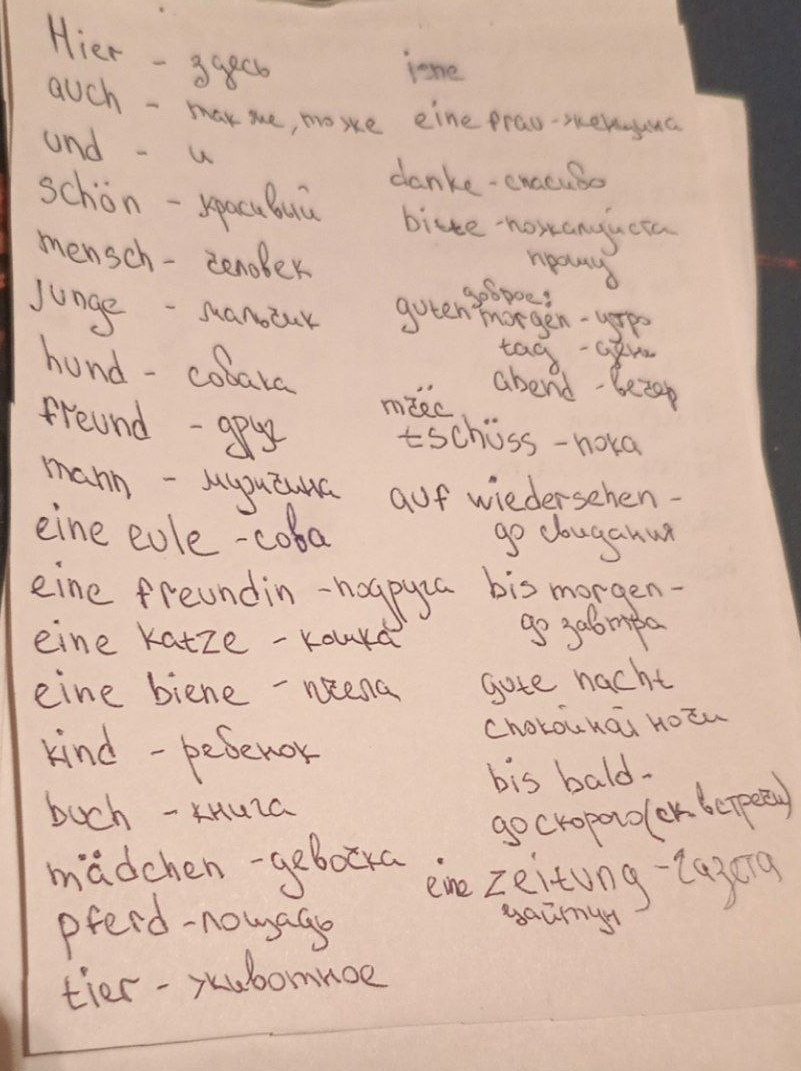 Hier - здесь
auch - так же, тоже
und - и
schön - красивый
mensch - человек
Junge - мальчик
hund - собака
freund - друг
mann - мужчина
eine eule - сова
eine freundin - подруга
eine katze - кошка
eine biene - пчела
kind - ребенок
buch - книга
mädchen - девочка
pferd - лошадь
tier - животное
eine frau - женщина
danke - спасибо
bitte - пожалуйста
прошу
доброе:
guten morgen - утро
tag - день
abend - вечер
tschüss - пока
auf wiedersehen -
до свидания
bis morgen -
до завтра
gute nacht
спокойной ночи
bis bald -
до скорого (ск. встречи)
eine zeitung - газета
цайтун